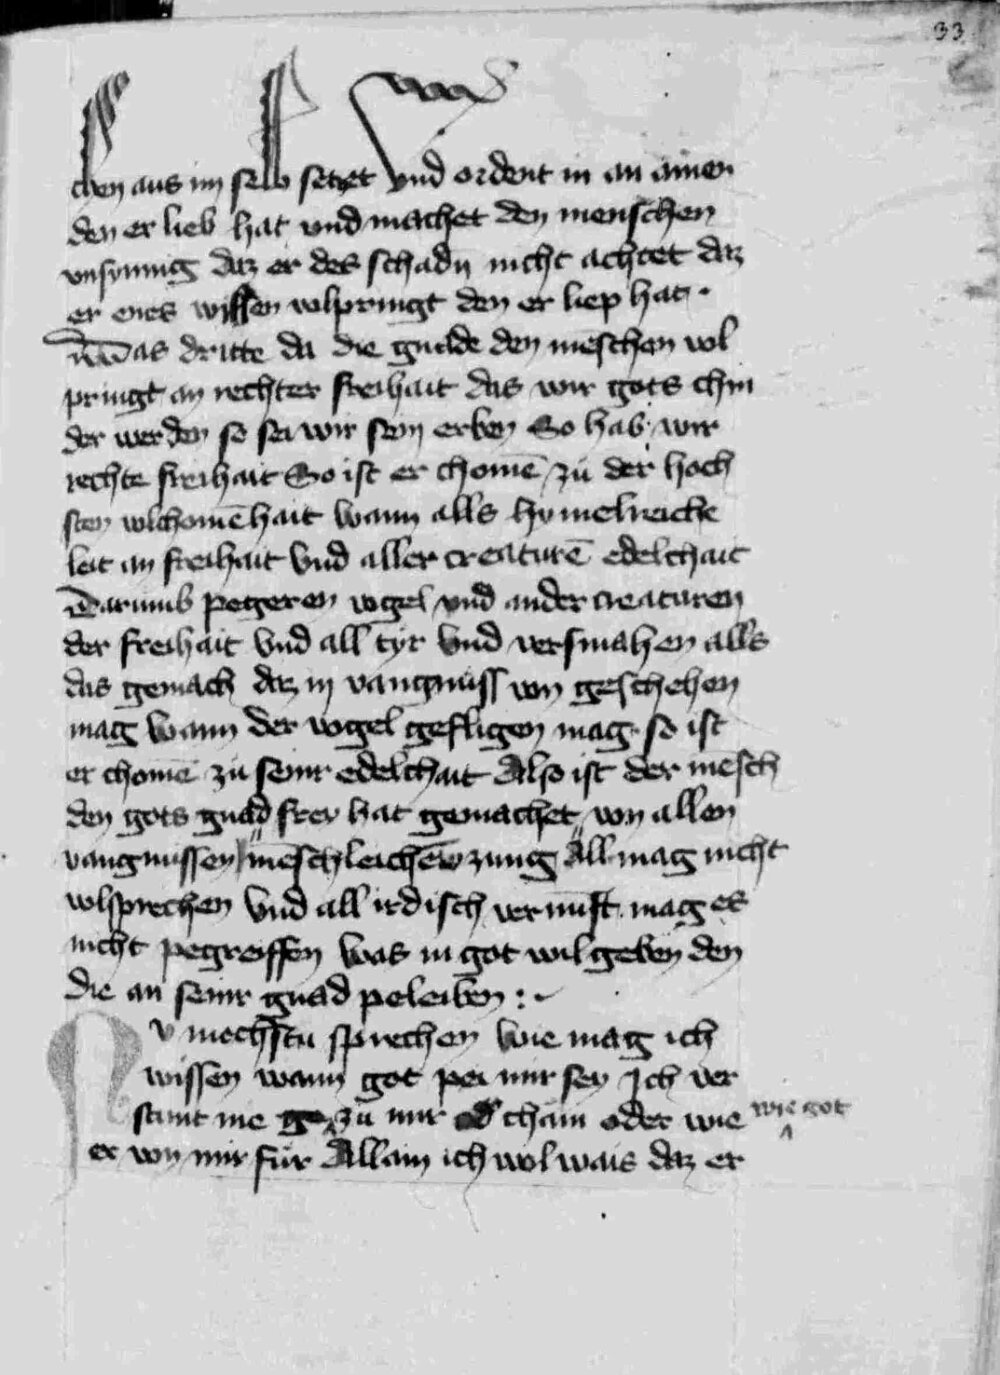 33
chen aus im selb setzet vnd ordent in an ainen
den er lieb hat vnd machet den menschen
vnsynnig daz er des schadn̄ nicht achtet daz
er enes willen volpringt den er liep hat ·
das dritte da die gnade den mēschen vol
pringt an rechter freihait das wir gots chin
der werden so sei wir sein erben So hab wir
rechte freihait So ist er chomē zu der hoch
sten volchomēhait wann alls hymelreiche
leit an freihait vnd aller creaturē edelchait
Darumb pegeren vogel vnd ander creaturen
der freihait vnd all tyr vnd versmahen alls
das gemach daz in vangnuss von geschehen
mag wann der vogel gefligen mag · so ist
er chomē zu seinr edelchait Also ist der mēsch
den gots gnad frey hat gemachet von allen
vangnussen mēschleichew zung All mag nicht
volsprechen vnd all irdisch vernunft mag es
nicht pegreiffen was in got wil geben den
die an seinr gnad peleiben :
Nv mochstu sprechen wie mag ich
wissen wann got pei mir sey Ich ver
stunt nie zu mir cham oder wie wie got
er von mir für Allain ich wol wais daz er